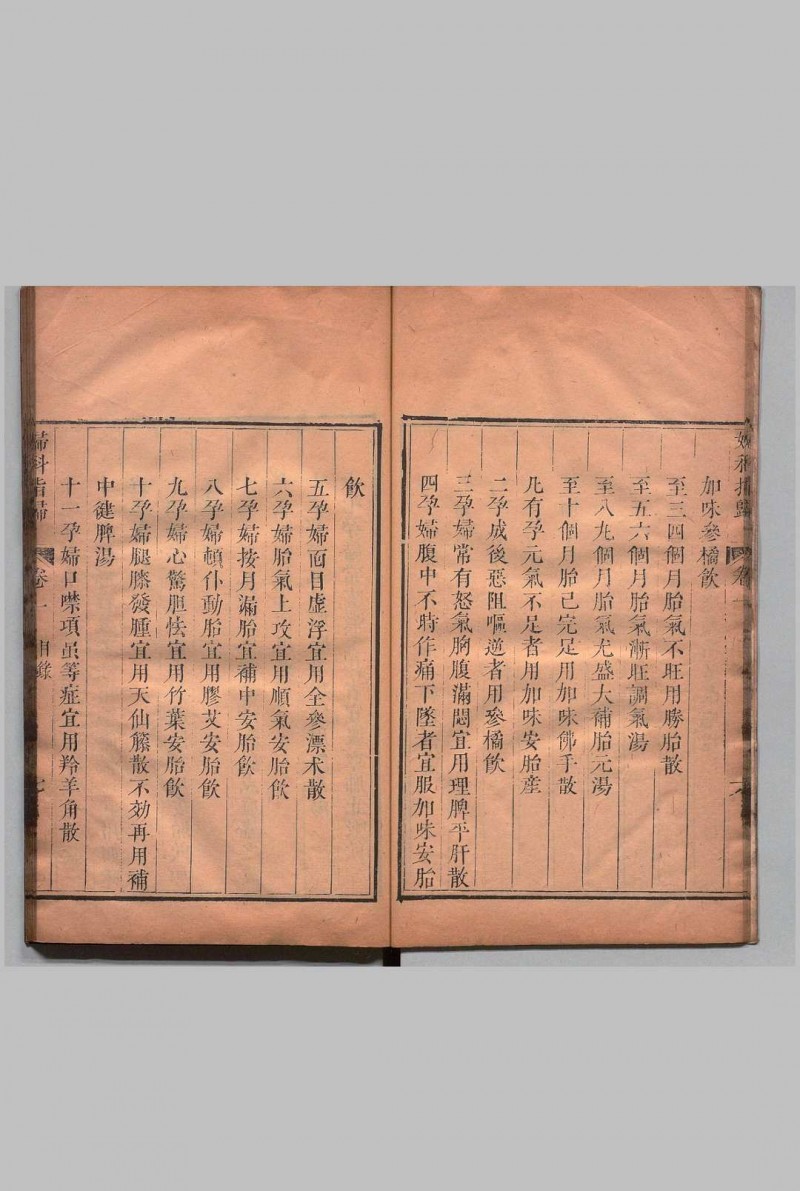 加味參橘飲
至三四個月胎氣不旺用勝胎散
至五六個月胎氣漸旺調氣湯
至八九個月胎氣尤盛大補胎元湯
至十個月胎已完足用加味佛手散
凡有孕元氣不足者用加味安胎産
二孕成後惡阻嘔逆者用參橘飲
三孕婦常有怒氣胸腹滿悶宜用理脾平肝散
四孕婦腹中不時作痛下墜者宜服加味安胎
飲
五孕婦面目虛浮宜用全參漂术散
六孕婦胎氣上攻宜用順氣安胎飲
七孕婦按月漏胎宜補中安胎飲
八孕婦頓仆動胎宜用膠艾安胎飲
九孕婦心驚胆怯宜用竹葉安胎飲
十孕婦腿膝發腫宜用天仙籐散不効再用補
中健脾湯
十一孕婦口噤項虽等症宜用羚羊角散
婦科指歸
卷一
目錄
七